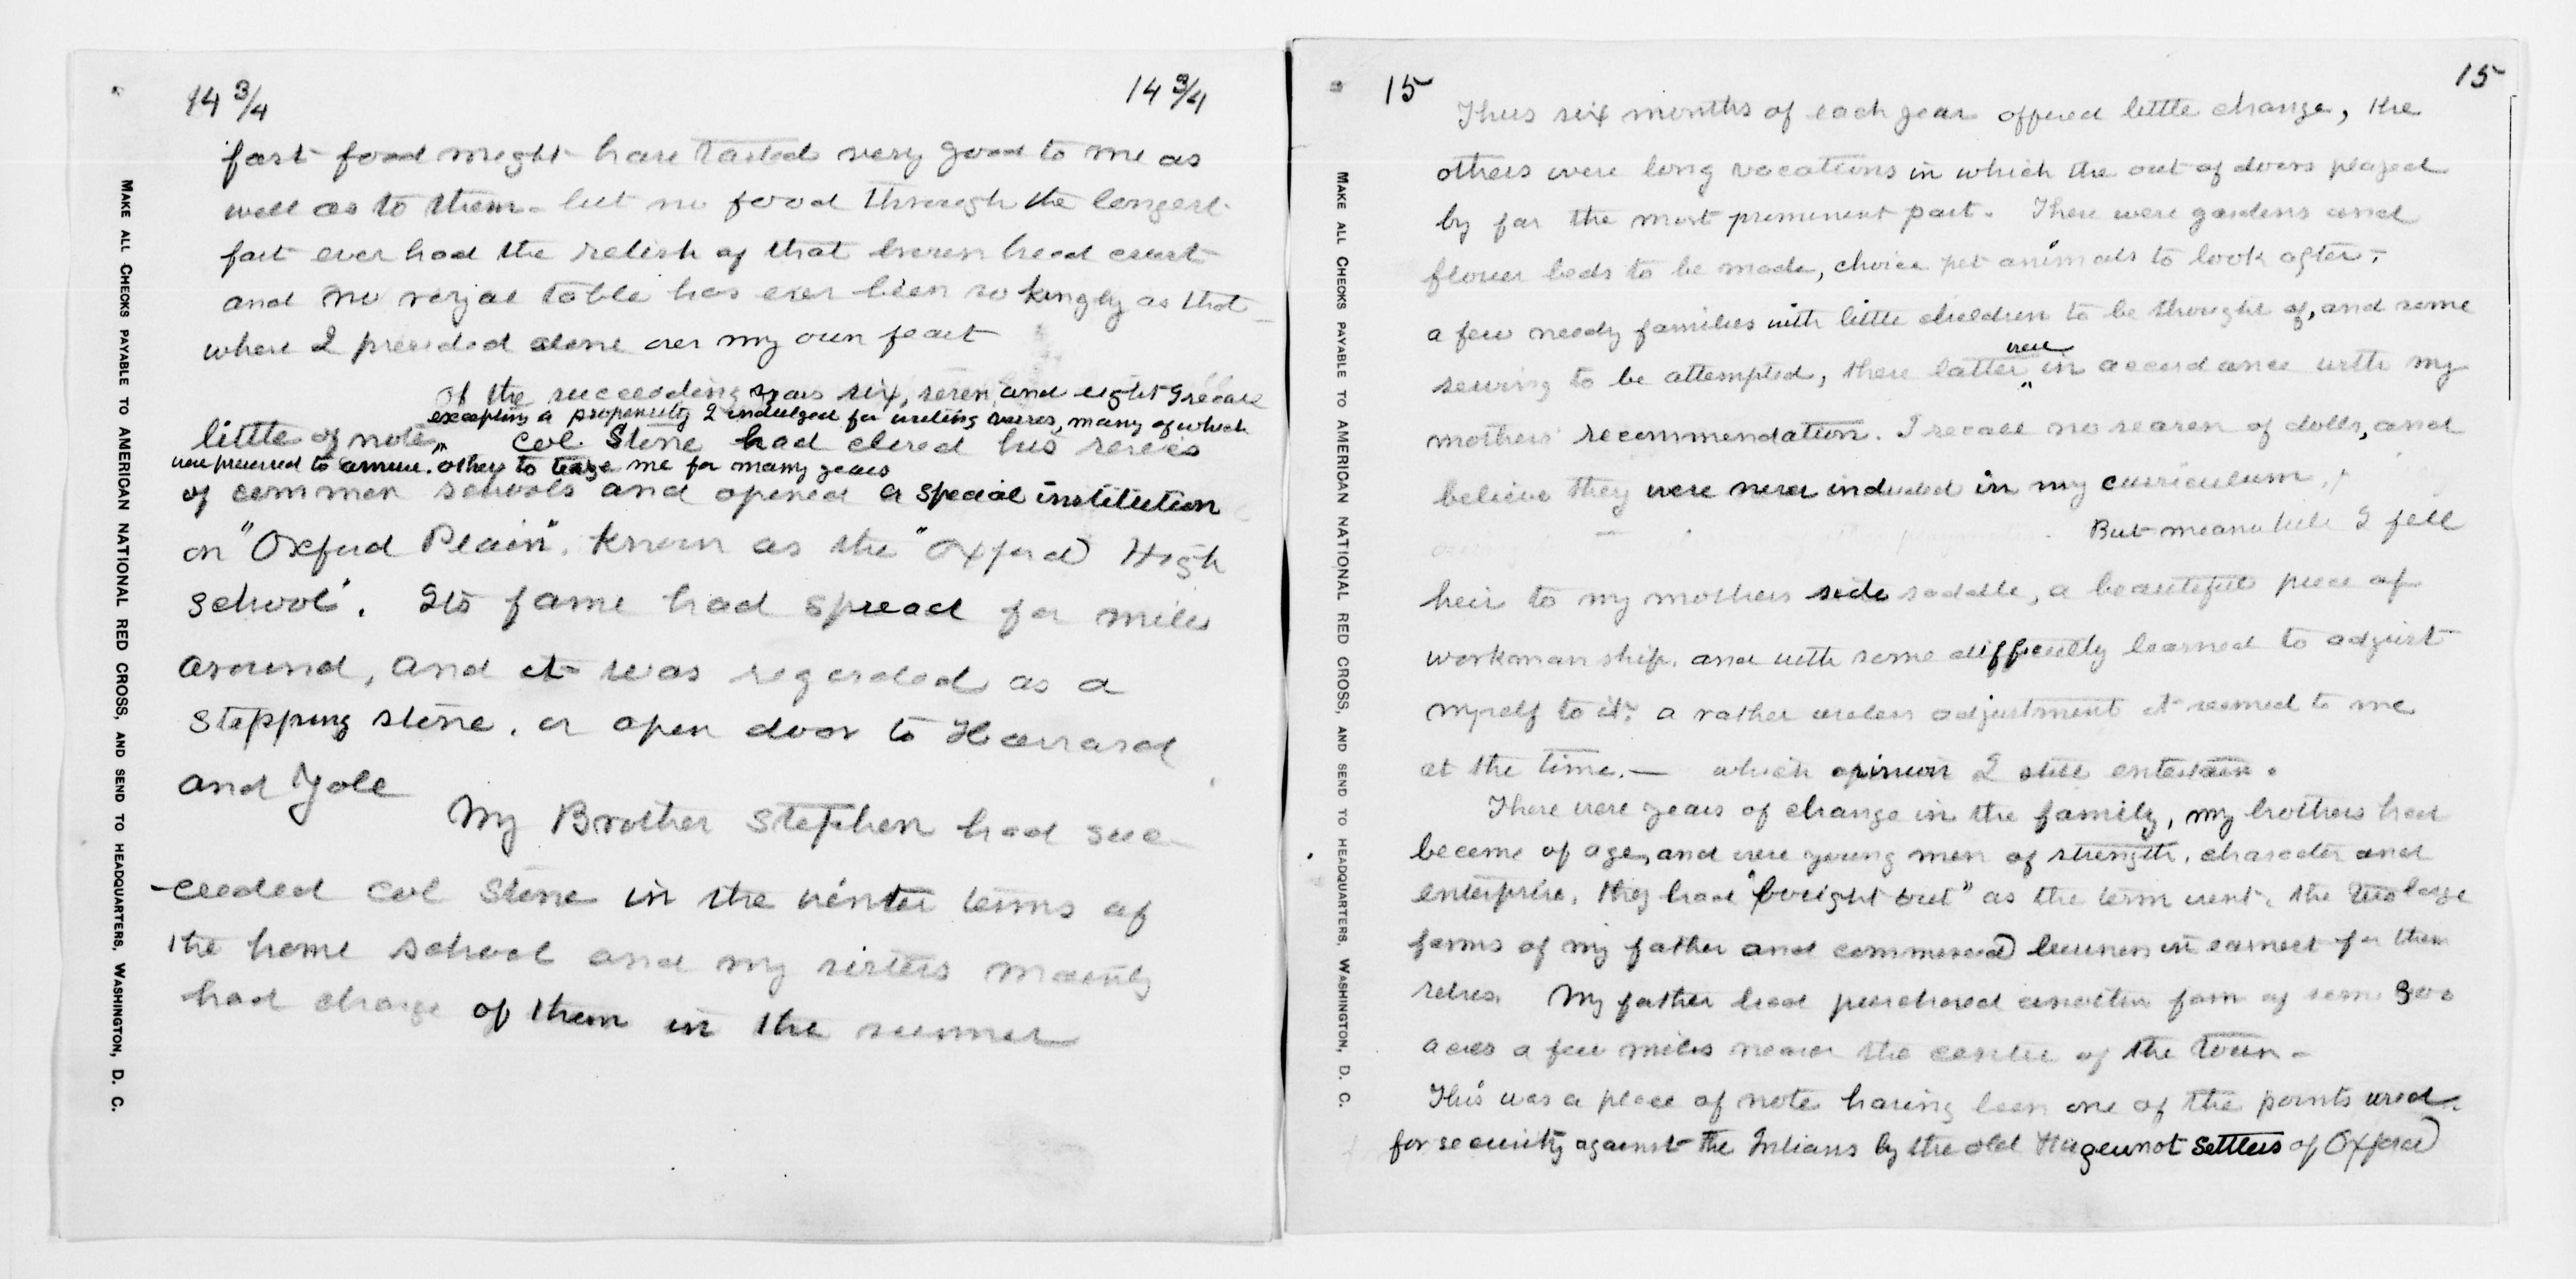 14 3/4
14 3/4
MAKE ALL CHECKS PAYABLE TO AMERICAN NATIONAL RED CROSS, AND SEND TO HEADQUARTERS, WASHINGTON, D. C.
fast food might have tasted very good to me as
well as to them - but no food through the longest
fast ever had the relish of that brown bread crust
and no royal table has ever been so kingly as that
where I presided alone over my own feast
of the succeeding years six, seven, and eight I recall
excepting a propensity I indulged for writing verses, many of which
little of note, Col. Stone had closed his series
were preserved to amuse, others to teaze me for many years
of common schools and opened a special institution
on "Oxford Plain", known as the "Oxford High
School". Its fame had spread for miles
around, and it was regarded as a
stepping stone, or open door to Harvard
and Yale
My Brother Stephen had suc-
-ceeded Col Stone in the winter terms of
the home school and my sisters mainly
had charge of them in the summer
15
15
MAKE ALL CHECKS PAYABLE TO AMERICAN NATIONAL RED CROSS, AND SEND TO HEADQUARTERS, WASHINGTON, D. C.
Thus six months of each year offered little change, the
others were long vacations in which the out of doors played
by far the most prominent part. There were gardens and
flower beds to be made, choice pet animals to look after,
a few needy families with little children to be thought of, and some
were
sewing to be attempted, these latter in accordance with my
mothers' recommendation. I recall no season of dolls, and
believe they were never included in my curriculum.
But meanwhile I fell
heir to my mothers side saddle, a beautiful piece of
workmanship, and with some difficulty learned to adjust
myself to it; a rather useless adjustment it seemed to me
at the time. — which opinion I still entertain.
There were years of change in the family, my brothers had
become of age, and were young men of strength, character and
enterprise, they had "bought out" as the term went, the two large
farms of my father and commenced business in earnest for them
selves. My father had purchased another farm of some 300
acres a few miles nearer the center of the town -
This was a place of note having been one of the points used
for security against the Indians by the old Hugeunot Settlers of Oxford